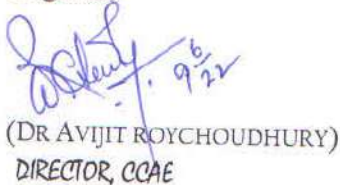 9/6/22
(DR AVIJIT ROYCHOUDHURY)
DIRECTOR, CCAE